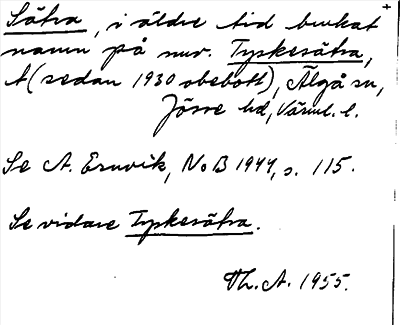 Sätra, i äldre tid brukat
namn på nuv. Tyskesätra,
t (sedan 1930 obebott), Älgå sn,
Jösse hd, Värml. l.
Se A. Ernvik, NoB 1944, s. 115.
Se vidare Tyskesätra.
Th. A. 1955.